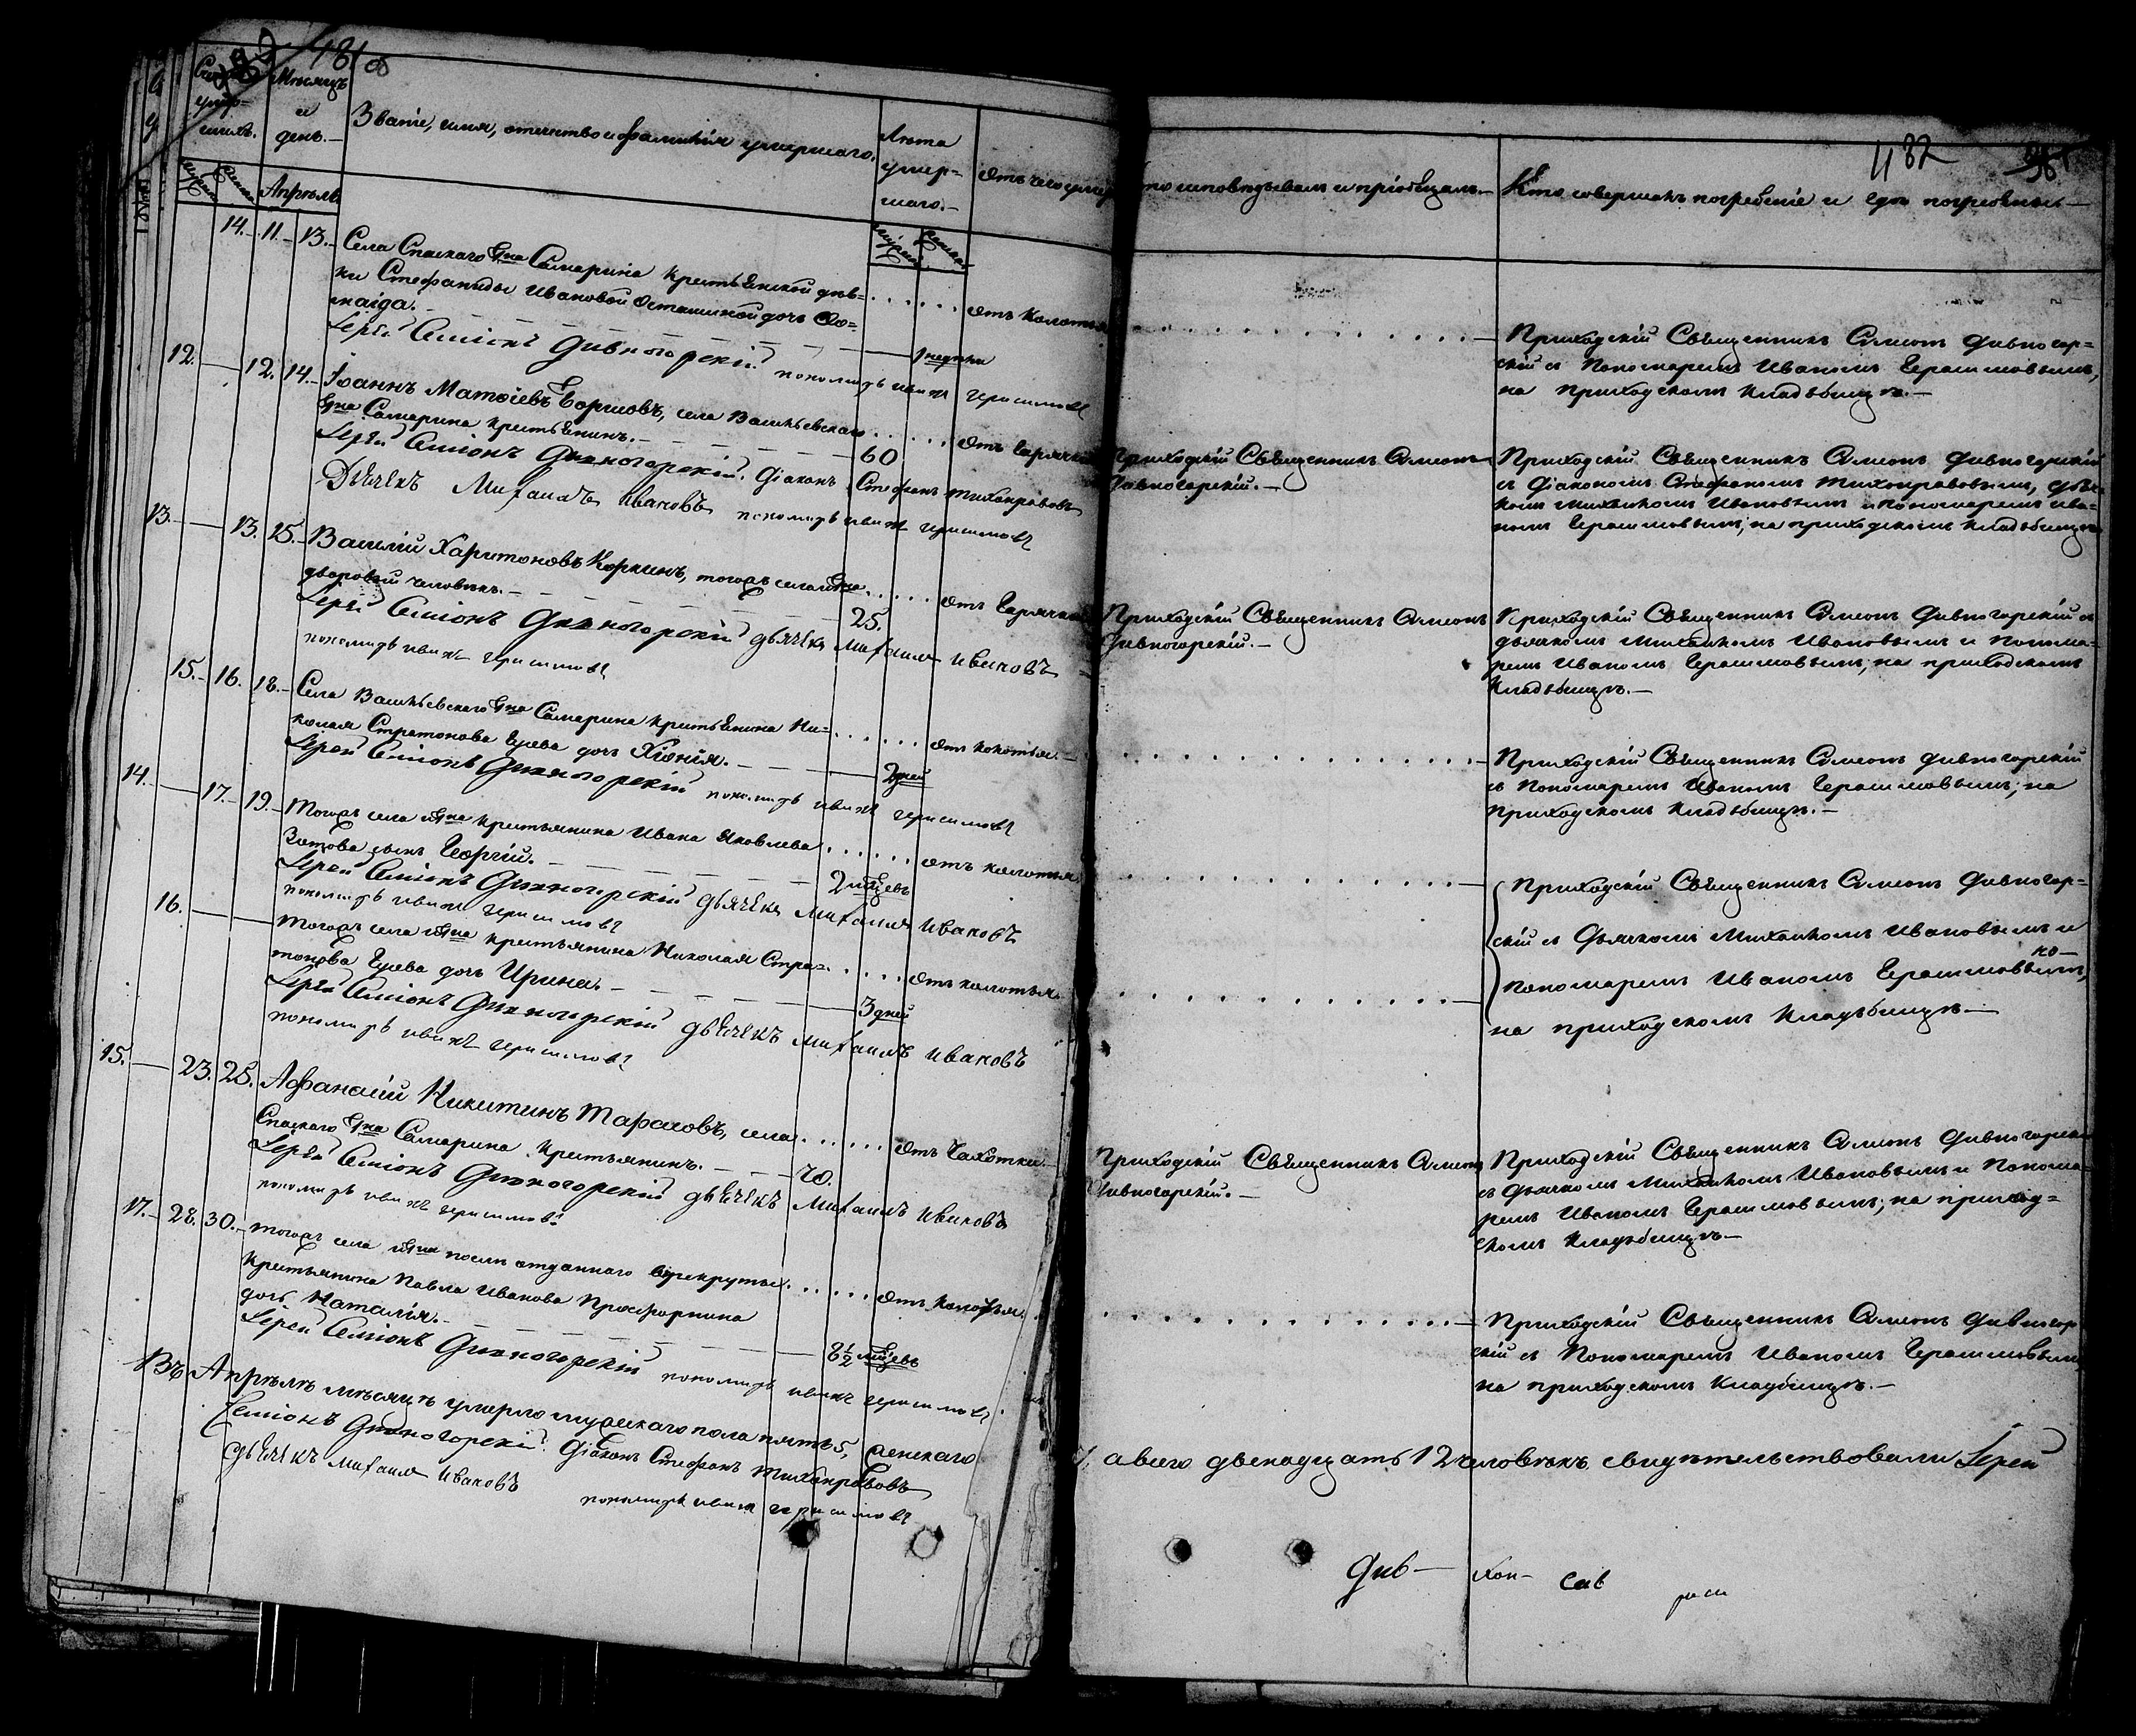 481 об
482
Счетъ умер-
шихъ.
Мѣсяцъ
и
день.
Званіе, имя, отчество и фамилія умершаго.
Лѣта
умер-
шаго.
Отъ чего умеръ
Кто исповѣдывалъ и пріобщалъ.
Кто совершалъ погребеніе и гдѣ погребены.
Апрѣль
14. 11. 13. Села Спаскаго Гдна Самарина крестьянской дѣв-
ки Стефаниды Ивановой Осташиной дочь
1 недѣли
Отъ колотья
Іерей Симеонъ Дивногорскій пономарь Иванъ Герасимовъ
Приходскій Священникъ Симеонъ Дивногор-
скій съ Пономаремъ Иваномъ Герасимовымъ,
на приходскомъ кладбищѣ.
12. 12. 14. Іоаннъ Матѳіевъ Борисовъ, села Васильевскаго
Гдна Самарина крестьянинъ.
60
Отъ горячки
Іерей Симеонъ Дивногорскій. Діаконъ Стефанъ Тихонравовъ
Дьячекъ Михаилъ Ивановъ пономарь Иванъ Герасимовъ
Приходскій Священникъ Симеонъ
Дивногорскій.
Приходскій Священникъ Симеонъ Дивногорскій
съ Діакономъ Стефаномъ Тихонравовымъ, дьяч-
комъ Михаиломъ Ивановымъ и пономаремъ Ива-
номъ Герасимовымъ, на приходскомъ кладбищѣ
13. 13. 15. Василій Харитоновъ Коркинъ, тогожъ села и Гдна
дворовый человѣкъ.
25.
Отъ Горячки
Іерей Симеонъ Дивногорскій дьячекъ Михаилъ Ивановъ
пономарь Иванъ Герасимовъ
Приходскій Священникъ Симеонъ
Дивногорскій.
Приходскій Священникъ Симеонъ Дивногорскій съ
дьячкомъ Михаиломъ Ивановымъ и Понома-
ремъ Иваномъ Герасимовымъ, на приходскомъ
кладбищѣ.
15. 16. 18. Села Васильевскаго Гдна Самарина крестьянина Ни-
колая Стратонова Гуева дочь Хіонія.
2 дней
Отъ колотья.
Іерей Симеонъ Дивногорскій пономарь Иванъ Герасимовъ
Приходскій Священникъ Симеонъ Дивногорскій
съ Пономаремъ Иваномъ Герасимовымъ; на
приходскомъ кладбищѣ.
14. 17. 19. Тогожъ села и Гдна крестьянина Ивана Яковлева
Зотова сынъ Георгій.
2 мѣсцевъ
отъ колотья
Іерей Симеонъ Дивногорскій дьячекъ Михаилъ Ивановъ
пономарь Иванъ Герасимовъ
Приходскій Священникъ Симеонъ Дивногор-
скій съ Дьячкомъ Михаиломъ Ивановымъ и
Пономаремъ Иваномъ Герасимовымъ,
на приходскомъ кладбищѣ.
16. Тогожъ села и Гдна крестьянина Николая Стра-
тонова Гуева дочь Ирина.
3 дней
Отъ колотья.
Іерей Симеонъ Дивногорскій дьячекъ Михаилъ Ивановъ
пономарь Иванъ Герасимовъ
15. 23. 25. Афанасій Никитинъ Тарасовъ, села
Спаскаго Гдна Самарина крестьянинъ.
70.
Отъ Чахотки.
Іерей Симеонъ Дивногорскій дьячекъ Михаилъ Ивановъ
пономарь Иванъ Герасимовъ
Приходскій Священникъ Симеонъ
Дивногорскій.
Приходскій Священникъ Симеонъ Дивногорск
съ Дьячкомъ Михаиломъ Ивановымъ и Понома-
ремъ Иваномъ Герасимовымъ; на приход-
скомъ кладбищѣ.
17. 28. 30. Тогожъ села и Гдна послѣ отданнаго въ рекруты
крестьянина Павла Иванова Просфорнина
дочь Наталія.
8½ мѣсцевъ
Отъ колотья.
Іерей Симеонъ Дивногорскій пономарь Иванъ Герасимовъ
Приходскій Священникъ Симеонъ Дивногор
скій съ Пономаремъ Иваномъ Герасимовымъ
на приходскомъ кладбищѣ.
Въ Апрѣлѣ мѣсяцѣ умерло мужескаго пола пять 5, женскаго
а всего двенадцать 12 человѣкъ свидѣтельствовали Іерей
Симеонъ Дивногорскій. Діаконъ Стефанъ Тихонравовъ
дьячекъ Михаилъ Ивановъ пономарь Иванъ Герасимовъ
Див-